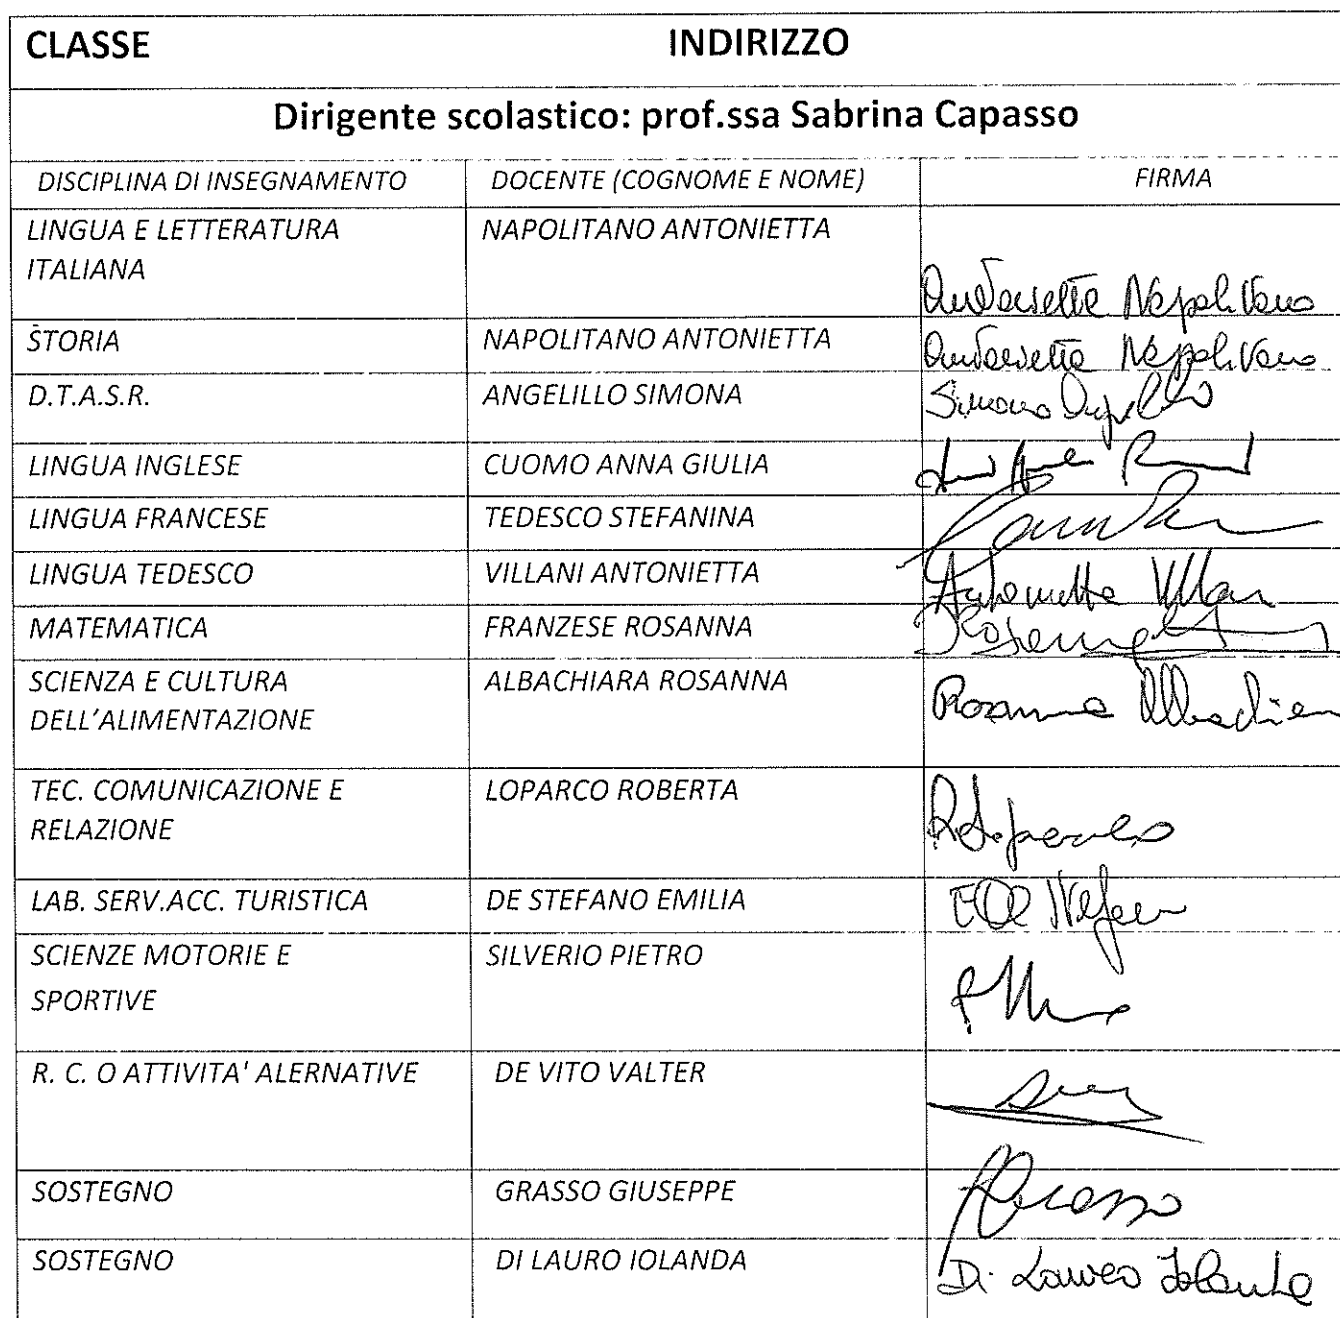 CLASSE INDIRIZZO
Dirigente scolastico: prof.ssa Sabrina Capasso
DISCIPLINA DI INSEGNAMENTO DOCENTE (COGNOME E NOME) FIRMA
LINGUA E LETTERATURA NAPOLITANO ANTONIETTA
ITALIANA
Antonietta Napolitano
STORIA NAPOLITANO ANTONIETTA Antonietta Napolitano
D.T.A.S.R. ANGELILLO SIMONA Simona Angelillo
LINGUA INGLESE CUOMO ANNA GIULIA
LINGUA FRANCESE TEDESCO STEFANINA
LINGUA TEDESCO VILLANI ANTONIETTA Antonietta Villani
MATEMATICA FRANZESE ROSANNA
SCIENZA E CULTURA ALBACHIARA ROSANNA Rosanna Albachiara
DELL'ALIMENTAZIONE
TEC. COMUNICAZIONE E LOPARCO ROBERTA
RELAZIONE
LAB. SERV.ACC. TURISTICA DE STEFANO EMILIA
SCIENZE MOTORIE E SILVERIO PIETRO
SPORTIVE
R. C. O ATTIVITA' ALERNATIVE DE VITO VALTER
SOSTEGNO GRASSO GIUSEPPE
SOSTEGNO DI LAURO IOLANDA Di Lauro Iolanda